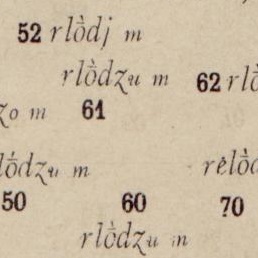 52 rlòdj m
rlòdzu m
62 rlò
zo m 61
lódzu m
rėlòd
50 60 70
rlòdzu m